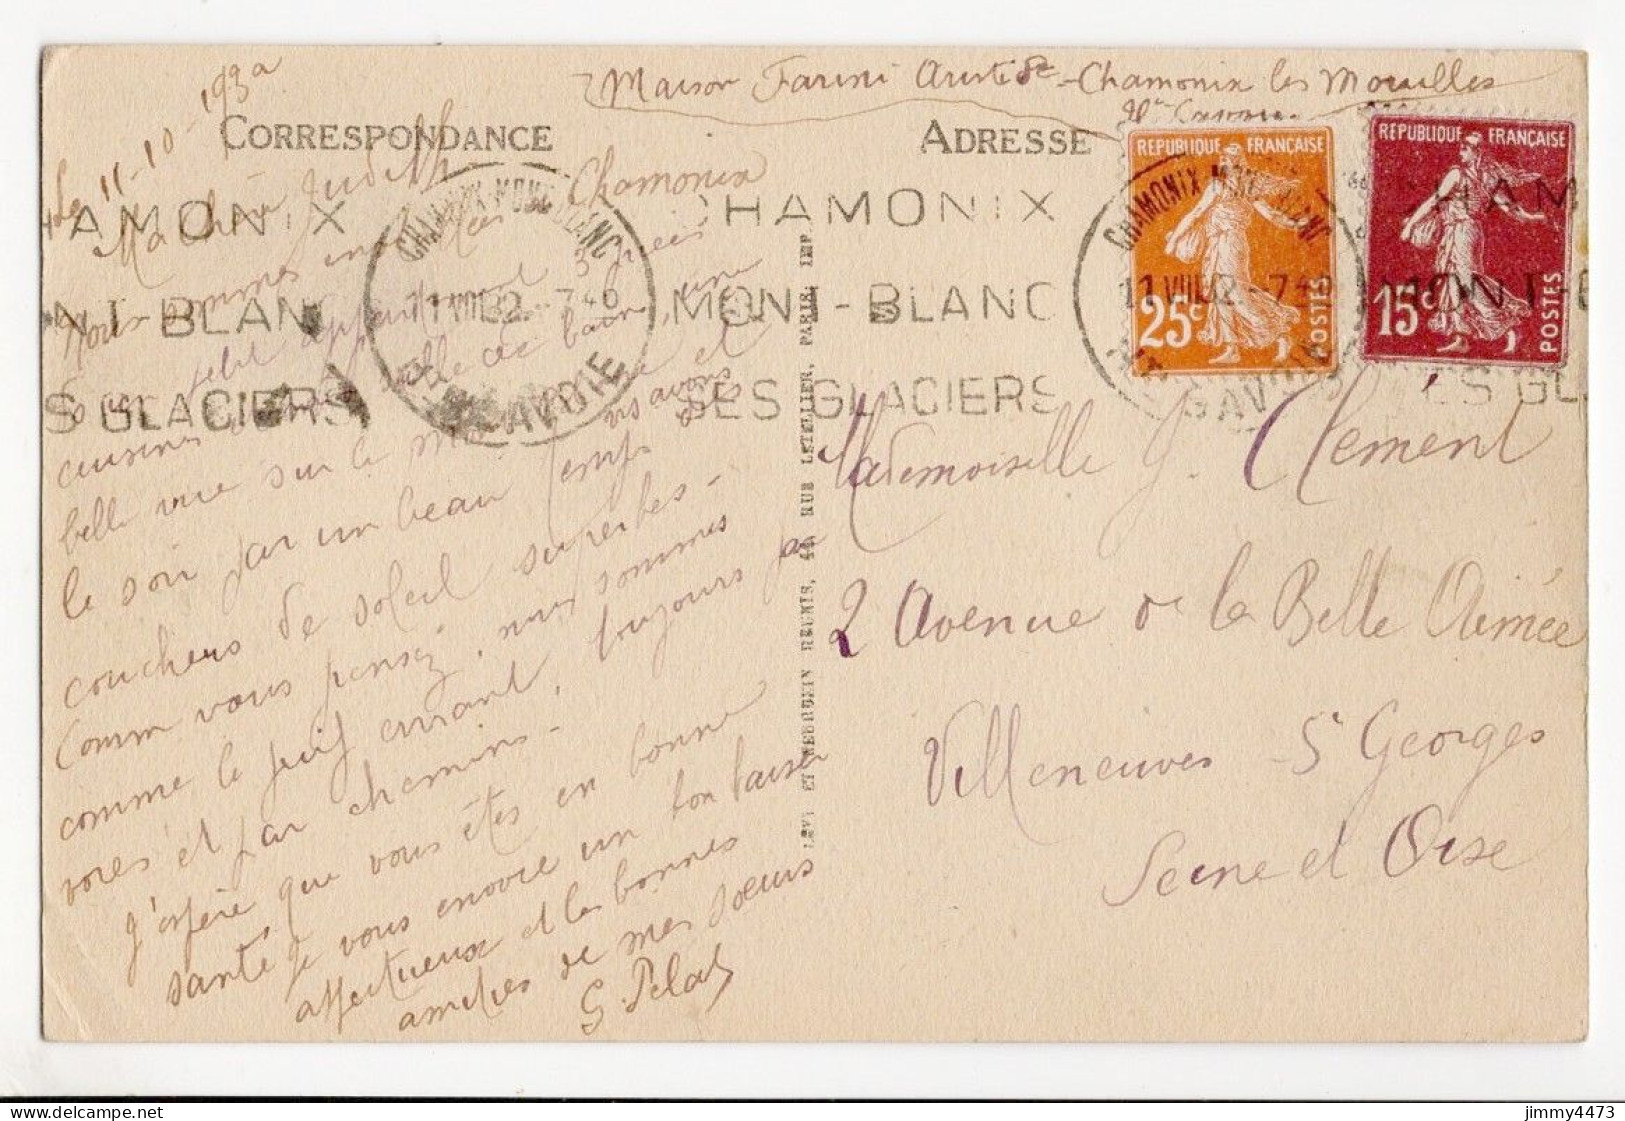 Maison Farini Aristide - Chamonix les Mouilles
Hte Savoie.
CORRESPONDANCE
ADRESSE
le 11-10-193
Ma chère Judith
Nous sommes en Chamonix
petit appartement 3 pièces
cuisine salle de bains, une
belle vue sur le et
le soir par un beau temps ns avons des
couchers de soleil superbes -
Comm vous pensez, nous sommes
comme le juif errant, toujours par
voies et par chemins -
J'espère que vous êtes en bonne
santé je vous envoie un bon baiser
affectueux et les bonnes
amitiés de mes soeurs
G. Pelat
AMONIX
NT-BLANC
S GLACIERS
CHAMONIX-MONT-BLANC
11 VIII 32 - 7 40
HTE SAVOIE
CHAMONIX
MONT-BLANC
SES GLACIERS
CHAMONIX MONT-BLANC
11 VIII 32 - 7 40
HTE SAVOIE
REPUBLIQUE FRANÇAISE
25c
POSTES
REPUBLIQUE FRANÇAISE
15c
POSTES
HAM
MONT-B
ES GL
LEVY ET NEURDEIN REUNIS, 44 RUE LETELLIER, PARIS. IMP.
Mademoiselle J. Clement
2 Avenue de la Belle Aimée
Villeneuves - St Georges
Seine et Oise
jimmy4473 - delcampe.net